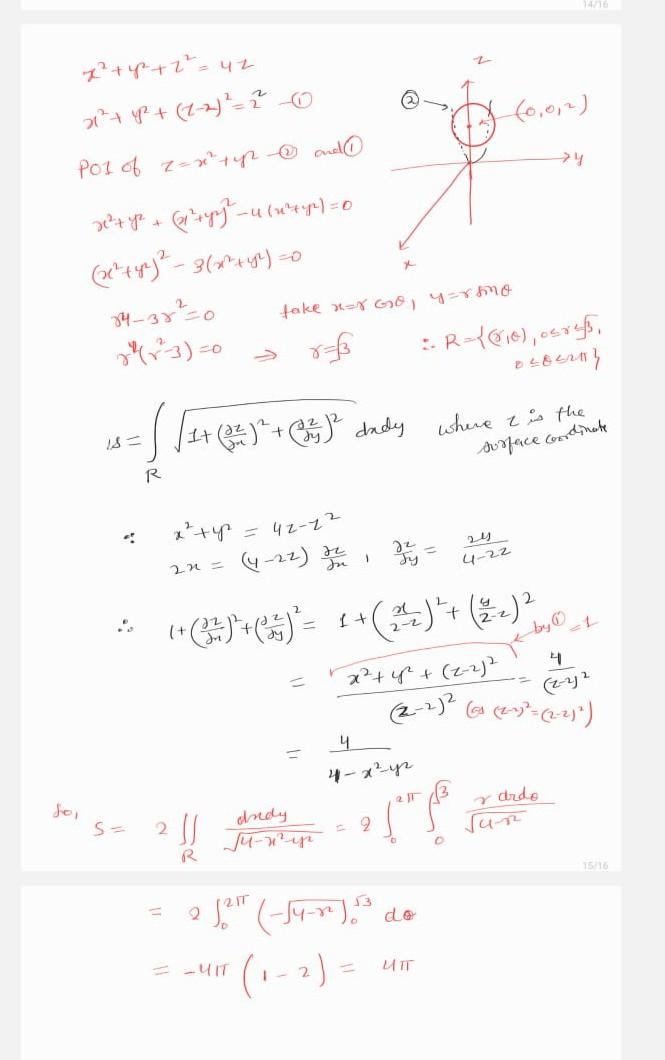 14/16
x² + y² + z² = 4z
x² + y² + (z-2)² = 2² -①
POI of z = x² + y² -② and ①
x² + y² + (x²+y²)² - 4(x²+y²) = 0
(x²+y²)² - 3(x²+y²) = 0
r⁴ - 3r² = 0 take x = r cosθ, y = r sinθ
r²(r²-3) = 0 ⇒ r = √3 ∴ R = {(r,θ), 0≤r≤√3,
0≤θ≤2π}
z
②
(0,0,2)
y
x
S = ∫ √1+(∂z/∂x)²+(∂z/∂y)² dxdy where z is the
R surface coordinate
∵ x² + y² = 4z - z²
2x = (4-2z) ∂z/∂x, ∂z/∂y = 2y/4-2z
∴ 1+(∂z/∂x)²+(∂z/∂y)² = 1+(x/2-z)²+(y/2-z)²
by ① = 4
= x²+y²+(z-2)²/(z-2)² = 4/(z-2)²
(as (z-2)² = (2-z)²)
= 4/4-x²-y²
So, S = 2 ∬ dxdy/√4-x²-y² = 2 ∫₀^2π ∫₀^√3 r drdθ/√4-r²
R
15/16
= 2 ∫₀^2π (-√4-r²)₀^√3 dθ
= -4π (1-2) = 4π